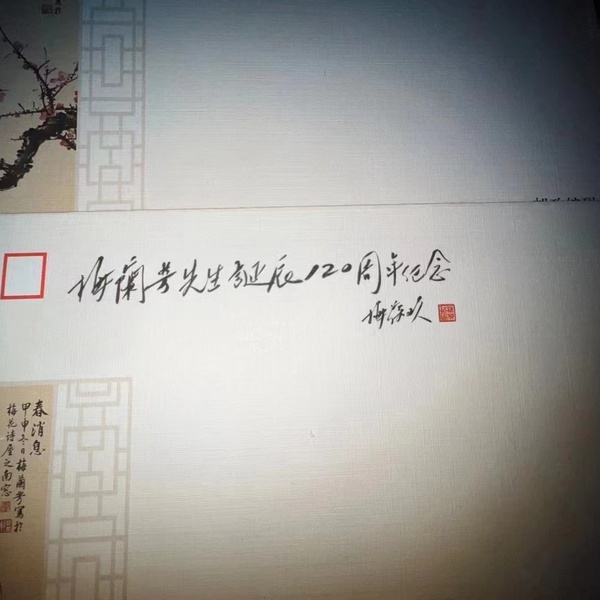 梅蘭芳先生誕辰120周年纪念
梅葆玖
春消息
甲申冬日梅蘭芳寫於
梅花詩屋之南窓